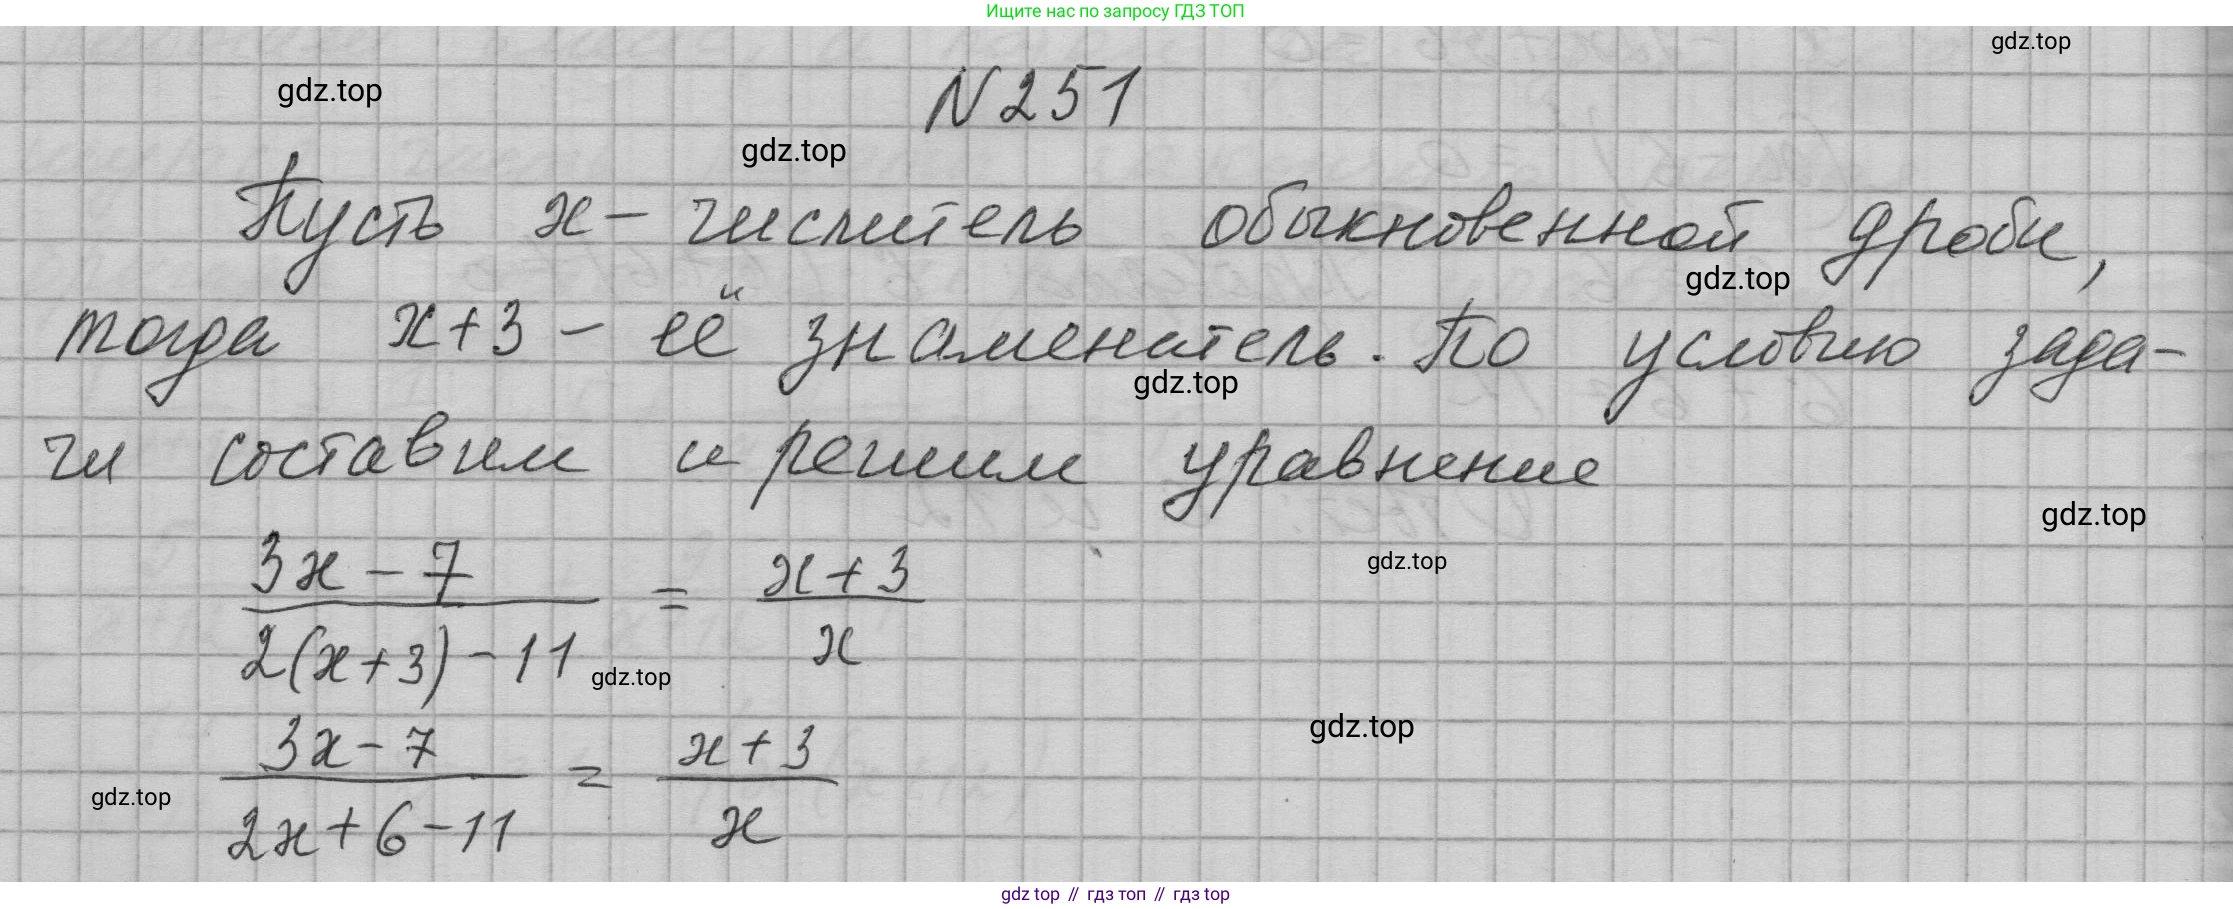 Ищите нас по запросу ГДЗ ТОП
gdz.top
gdz.top
N 251
gdz.top
Пусть x – числитель обыкновенной дроби,
gdz.top
тогда x+3 – её знаменатель. По условию зада-
gdz.top
чи составим и решим уравнение
gdz.top
gdz.top
(3x – 7)/(2(x+3) – 11) = (x+3)/x
gdz.top
gdz.top
(3x – 7)/(2x+6–11) = (x+3)/x
gdz.top
gdz top // гдз топ // гдз top